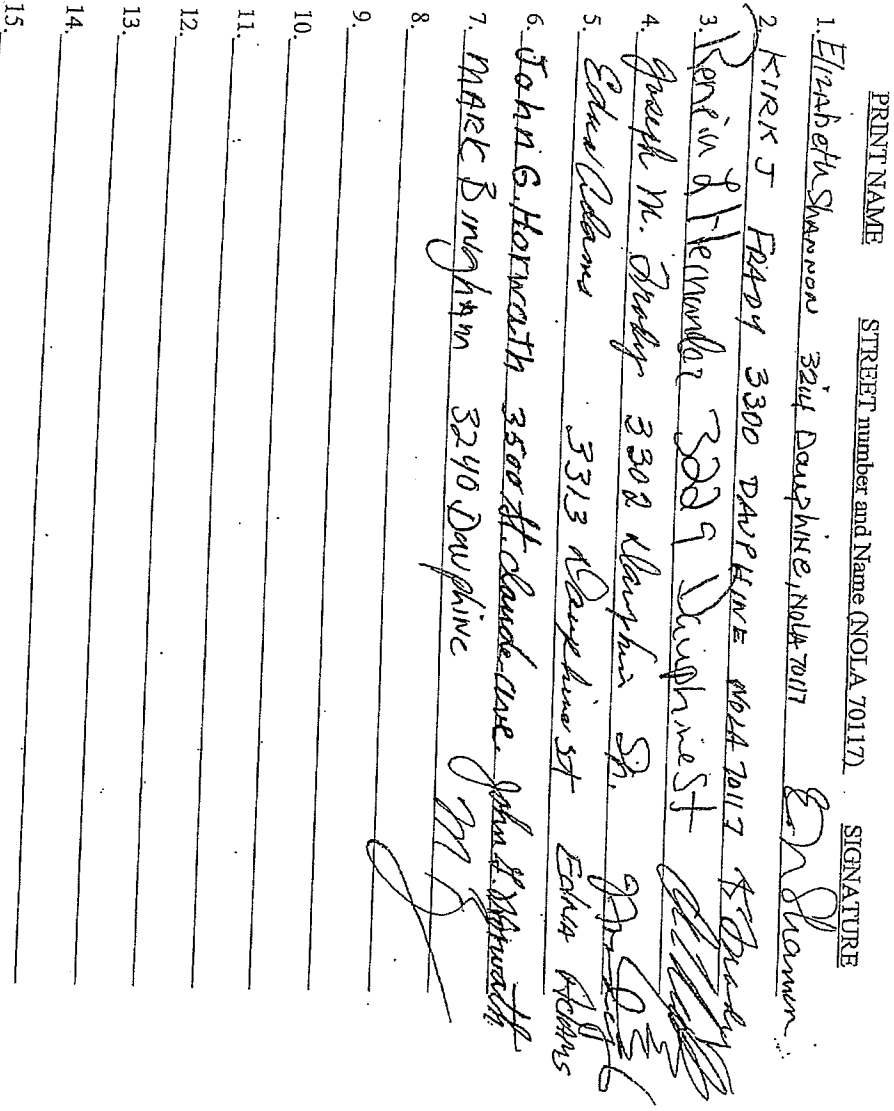 PRINT NAME STREET number and Name (NOLA 70117) SIGNATURE
1. Elizabeth Shannon 3214 Dauphine, NOLA 70117 E Shannon
2. KIRK J FRADY 3300 DAUPHINE NOLA 70117 K J Frady
3. L Hernandez 3229 Dauphine St
4. Joseph M. Frady 3302 Dauphin St.
5. Edna Adams 3313 Dauphine St EdNA AdAMS
6. John G. Horwath 3500 St. Claude ave. John G. Horwath
7. MARK Bingham 3240 Dauphine M B
8.
9.
10.
11.
12.
13.
14.
15.